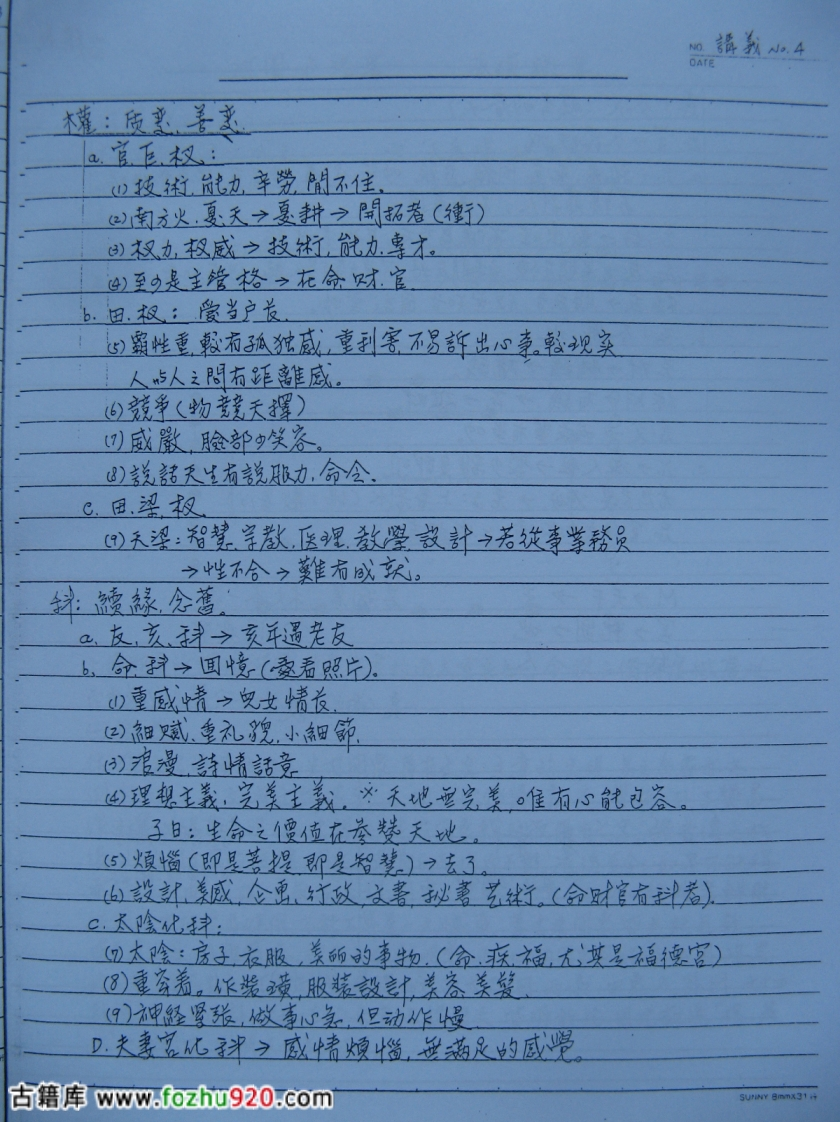 NO. 講義 No.4
DATE
權：质变.善变.
a. 官.巨.权：
(1) 技術.能力.辛勞.閒不住。
(2) 南方火.夏天→夏耕→開拓者(衝)
(3) 权力.权威→技術.能力.專才。
(4) 至少是主管格→在命.财.官.
b. 田.权：愛当户长.
(5) 霸性重.較有孤独感，重利害.不易訴出心事。較现实
人与人之間有距離感。
(6) 競爭(物競天擇)
(7) 威嚴，臉部少笑容。
(8) 説話天生有説服力.命令。
c. 田.梁.权
(9) 天梁：智慧.宗教.医理.教學.設計→若從事業務员
→性不合→難有成就。
科：續緣.念舊.
a. 友.亥.科→亥年遇老友
b. 命.科→回憶(愛看照片)。
(1) 重感情→兒女情长.
(2) 細賦.重礼貌.小細節.
(3) 浪漫.詩情話意
(4) 理想主義.完美主義.※天地無完美.唯有心能包容。
子曰：生命之價值在參贊天地。
(5) 煩惱(即是菩提.即是智慧)→去了。
(6) 設計.美感.企画.行政.文書.秘書.艺術。(命财官有科者).
c. 太陰化科：
(7) 太陰：房子.衣服.美丽的事物.(命.疾.福.尤其是福德宫)
(8) 重穿着。作装璜.服裝設計.美容.美髮.
(9) 神経緊张.做事心急.但动作慢.
D. 夫妻宫化科→感情煩惱.無滿足的感覺。
SUNNY 8mmX31行
古籍库 www.fozhu920.com